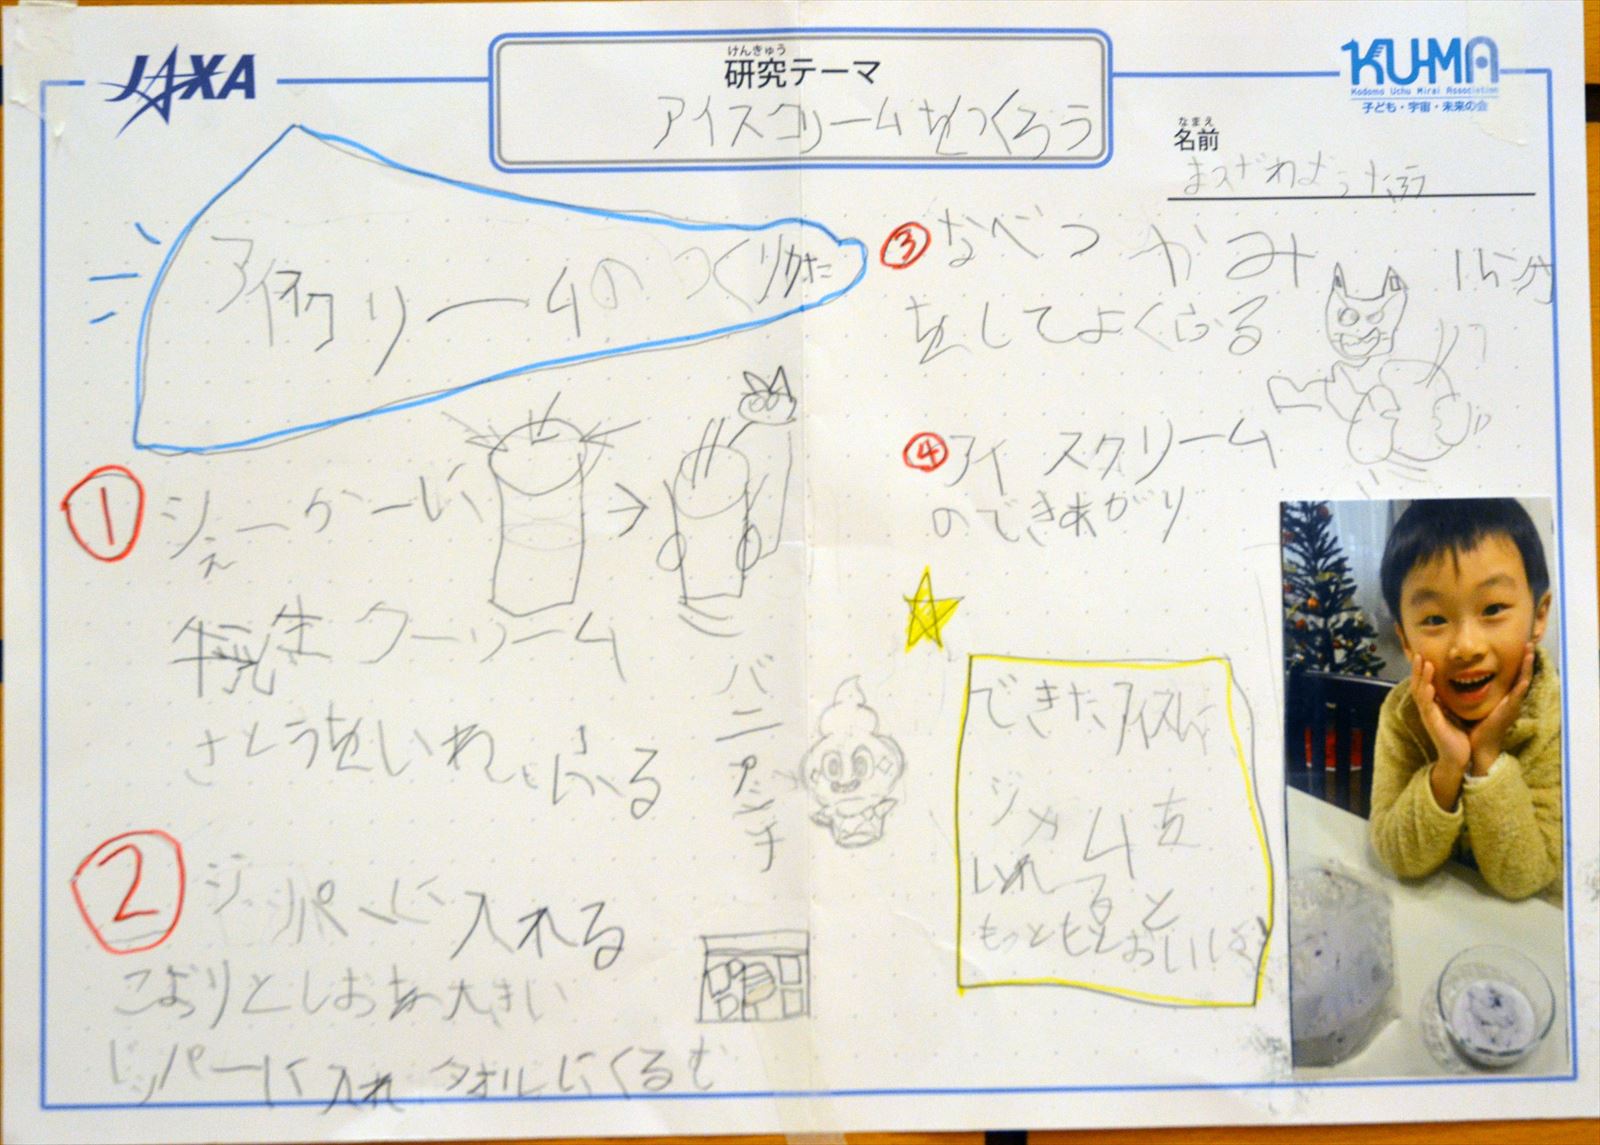 JAXA
けんきゅう
研究テーマ
アイスクリームをつくろう
KU-MA
Kodomo Uchu Mirai Association
子ども・宇宙・未来の会
なまえ
名前
アイスクリームのつくりかた
1
シェーカーに
牛乳生クーリーム
さとうをいれ、ふる
バニプッチ
2
ジッパーに入れる
こおりとしおを大きい
ジッパーに入れ タオルにくるむ
3
なべつかみ
をしてよくふる
15分
4
アイスクリーム
のできあがり
できたアイスに
ジャムを
いれると
もっともっとおいしい